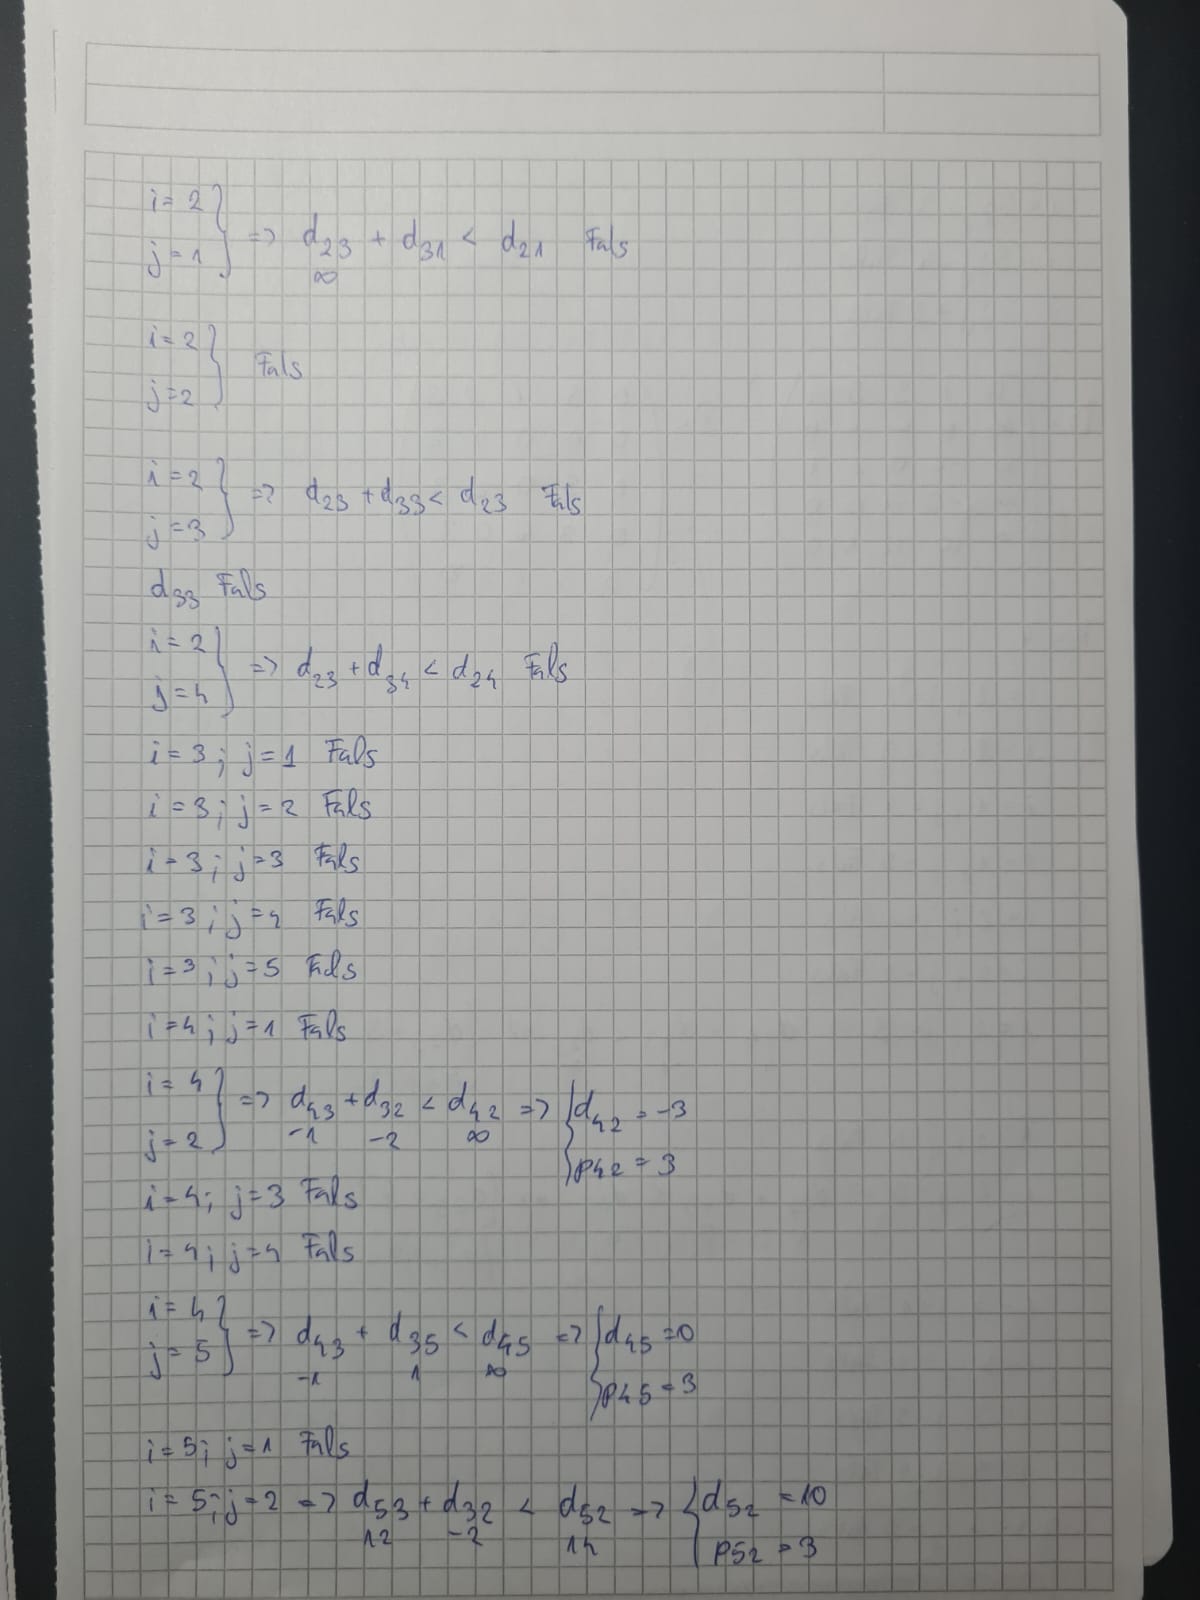 i = 2
j = 1 } => d23 + d31 < d21 Fals
∞
i = 2
j = 2 } Fals
i = 2
j = 3 } => d23 + d33 < d23 Fals
d33 Fals
i = 2
j = 4 } => d23 + d34 < d24 Fals
i = 3 ; j = 1 Fals
i = 3 ; j = 2 Fals
i = 3 ; j = 3 Fals
i = 3 ; j = 4 Fals
i = 3 ; j = 5 Fals
i = 4 ; j = 1 Fals
i = 4
j = 2 } => d43 + d32 < d42 => { d42 = -3
-1 -2 ∞
p42 = 3
i = 4 ; j = 3 Fals
i = 4 ; j = 4 Fals
i = 4
j = 5 } => d43 + d35 < d45 => { d45 = 0
-1 1 ∞
p45 = 3
i = 5 ; j = 1 Fals
i = 5 ; j = 2 => d53 + d32 < d52 => { d52 = 10
12 -2 14
p52 = 3